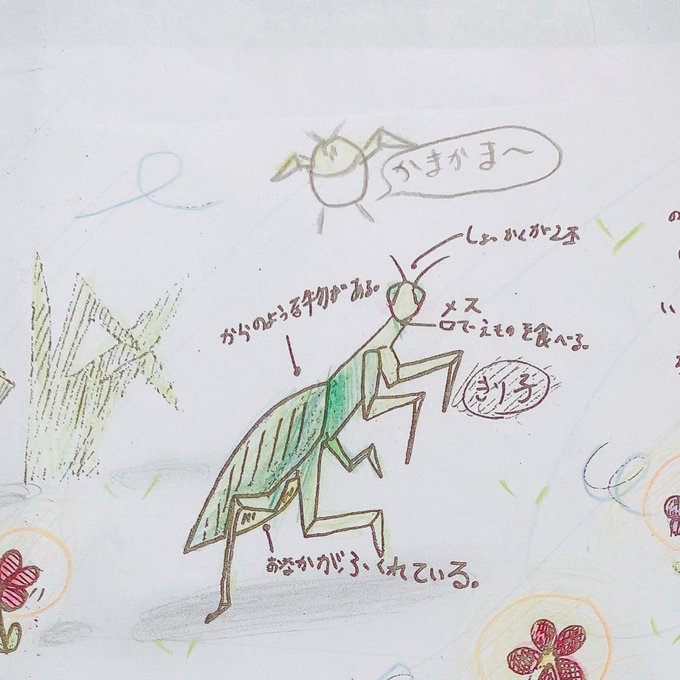 かまかま〜
しょっかくが2本
からのような物がある。
メス
口でえものを食べる。
きり子
おなかがふくれている。
の
い